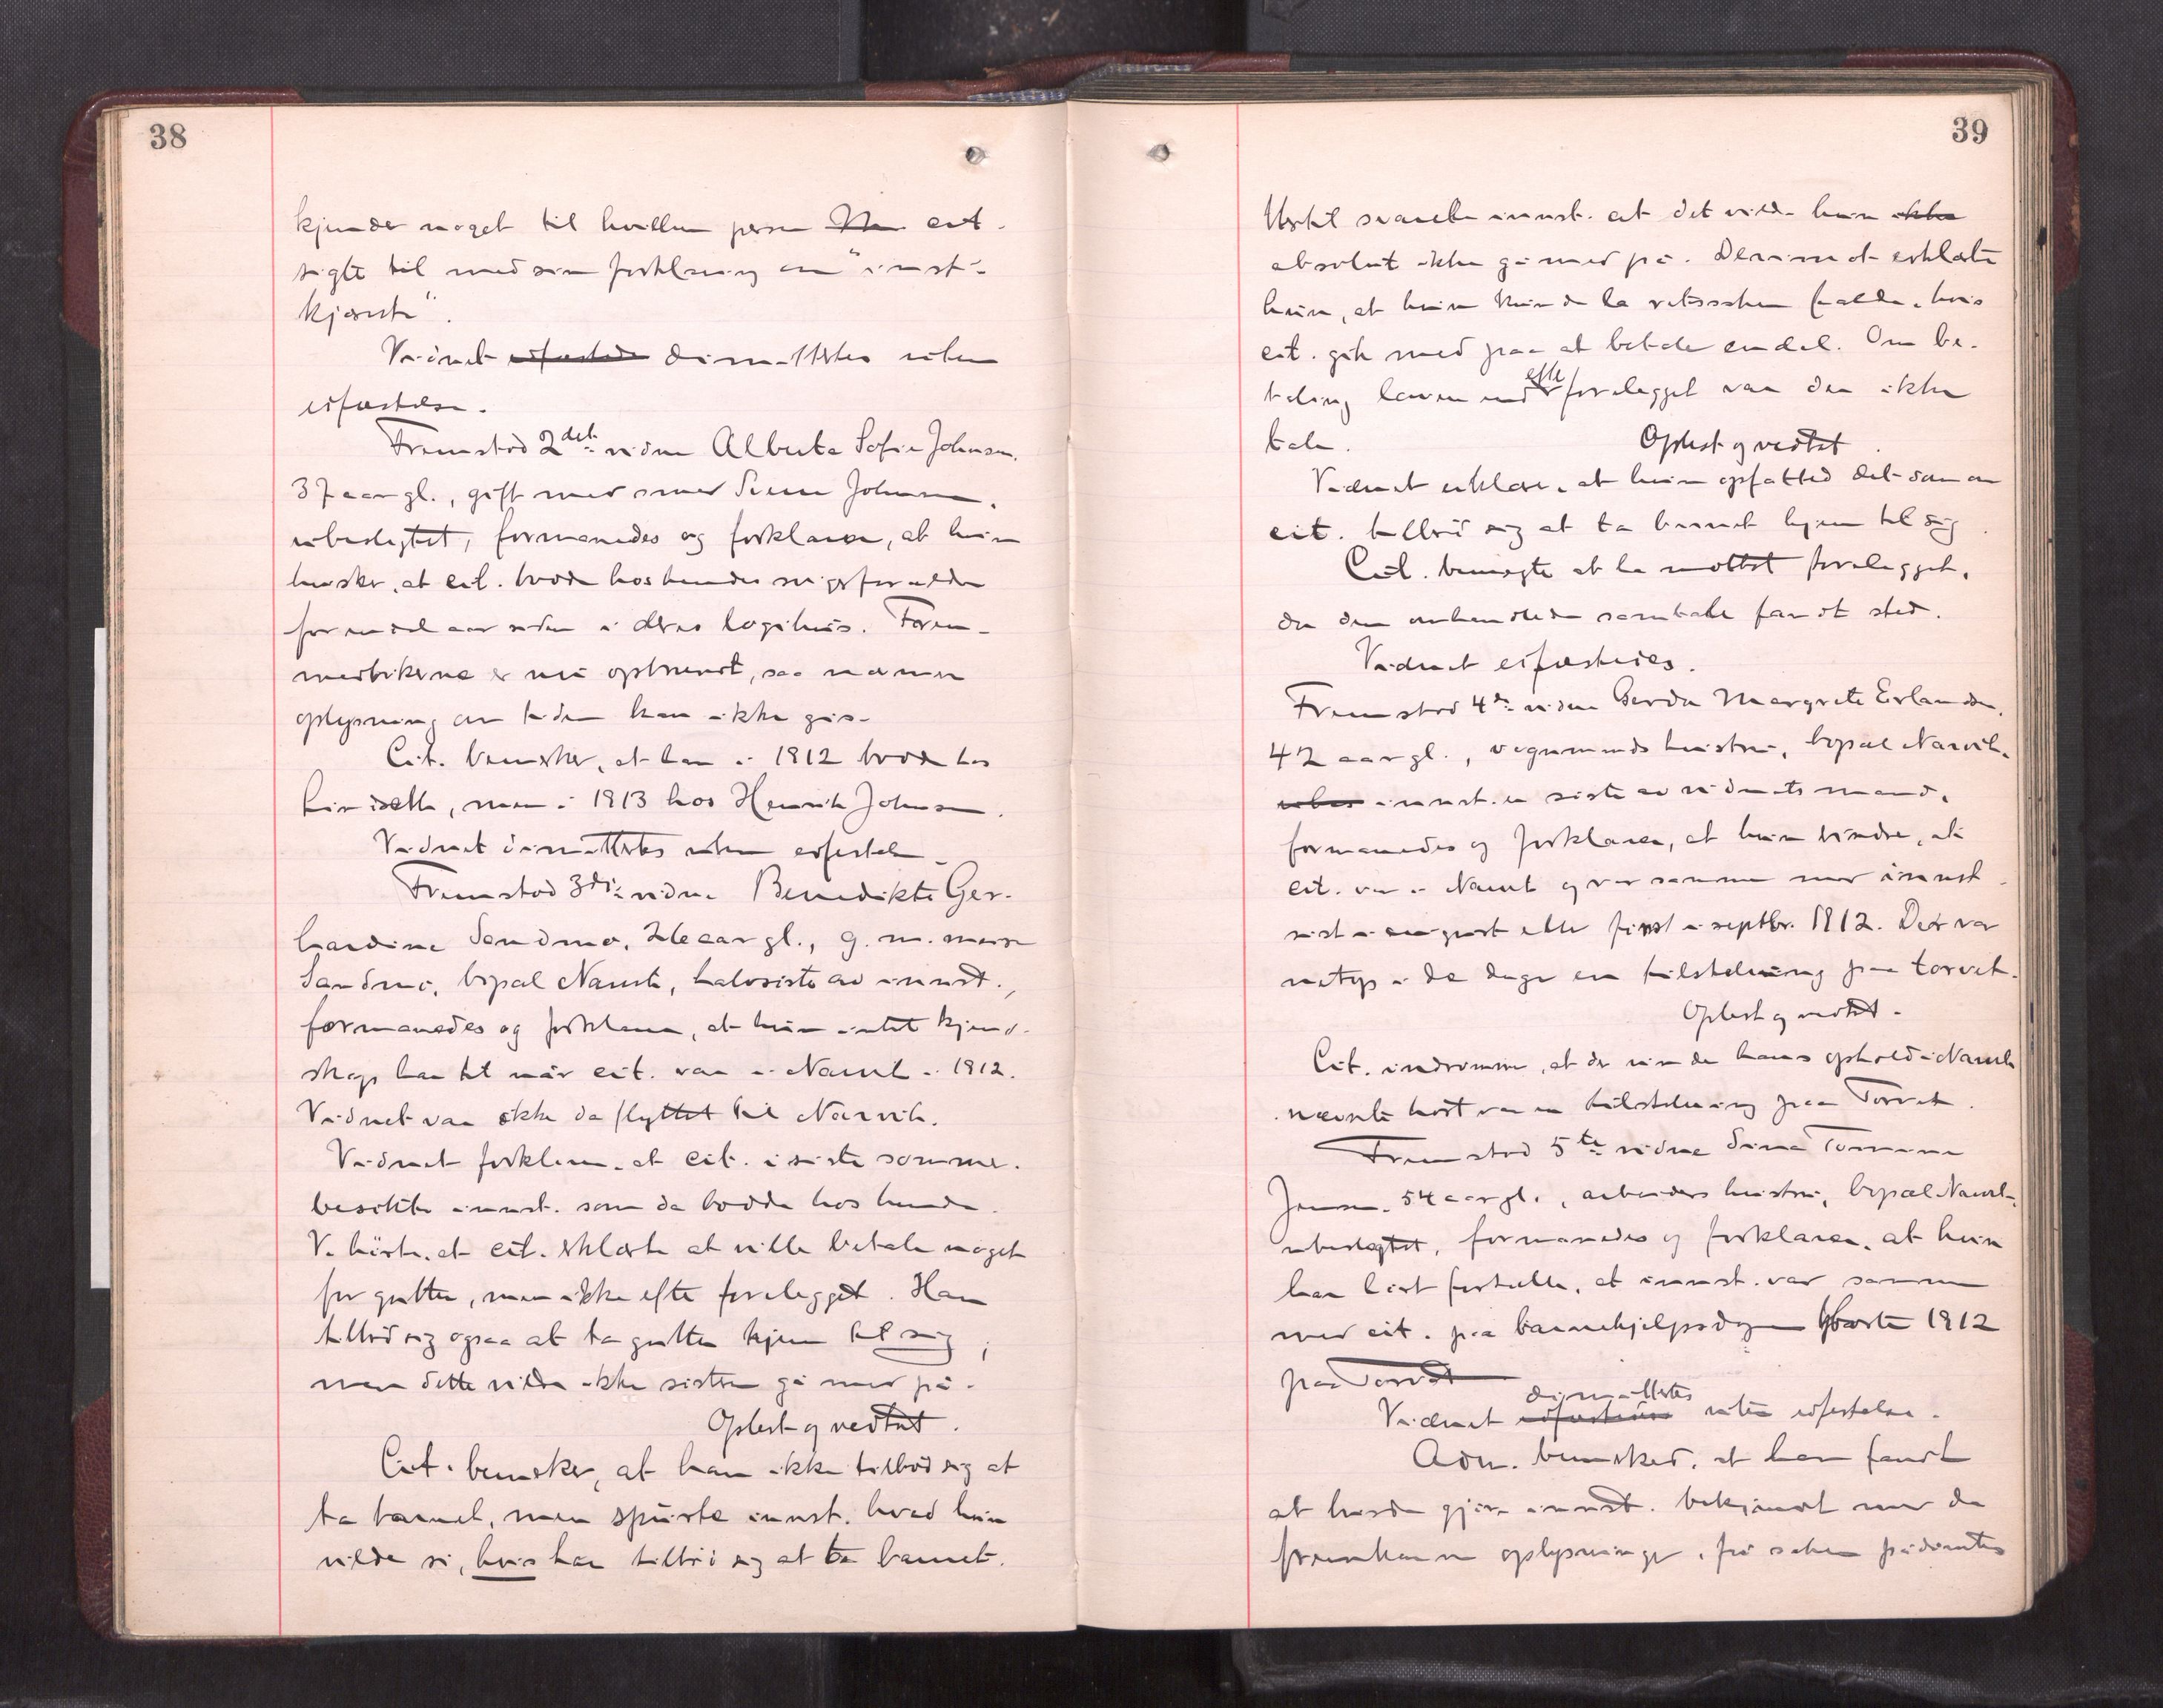 38
kjender noget til hvilken person ~~Han~~ cit.
sigte til med sin forklaring om "innst's
kjæreste".
Vidnet ~~edfæstedes~~ dimittertes uten
edfæstelse.
Fremstod 2det vidne Alberta Sofie Johnsen,
37 aar gl., gift med smed Johnsen,
ubeslegtet, formanedes og forklarer, at hun
husker, at cit. bodde hos hendes svigerforældre
for endel aar siden i deres logihus. Frem-
medbøkerne er nu opbrendt, saa nærmere
oplysning om tiden kan ikke gis.
Cit. bemerker, at han i 1912 bodde hos
, men i 1913 hos Henrik Johnsen.
Vidnet dimittertes uten edfestelse.
Fremstod 3die vidne Benedikte Ger-
hardine Sandmo, aar gl., g. m.
Sandmo, bopæl Narvik, halvsøster av innst.,
formanedes og forklarer, at hun intet kjend-
skap har til når cit. var i Narvik i 1912.
Vidnet var ikke da flyttet til Narvik.
Vidnet forklarer, at cit. i siste sommer
besøkte innst. som da bodde hos hende.
V. hørte, at cit. erklærte at ville betale noget
for gutten, men ikke efter forelegget. Han
tilbød sig ogsaa at ta gutten hjem til sig,
men dette vilde ikke søsteren gå med på.
Oplest og vedtat.
Cit. bemerker, at han ikke tilbød sig at
ta barnet, men spurte innst. hvad hun
vilde si, hvis han tilbød sig at ta barnet.
39
Hertil svarte innst. at det vilde hun ~~ikke~~
absolut ikke gå med på. Derimot erklærte
hun, at hun kunde la retssaken falde, hvis
cit. gik med paa at betale endel. Om be-
taling lavere end efter forelegget var der ikke
tale. Oplest og vedtat.
Vidnet erklærer, at hun opfattet det som om
cit. tilbød sig at ta barnet hjem til sig.
Cit. benegte at ha mottat forelegget,
da den omhandlede samtale fandt sted.
Vidnet edfæstedes.
Fremstod 4de vidne Gerda Margrete Erlandsen,
42 aar gl., vognmands hustru, bopæl Narvik,
~~ubes~~ innst. er søster av vidnets mand,
formanedes og forklarer, at hun erindrer, at
cit. var i Narvik og var sammen med innst.
sist i august eller først i septbr. 1912. Det var
netop i de dage en tilstelning paa torvet.
Oplest og vedtat.
Cit. indrømmer, at der under hans ophold i Narvik
nævnte høst var en tilstelning paa Torvet.
Fremstod 5te vidne Sina Tomine
Jensen, 54 aar gl., arbeiders hustru, bopæl Narvik,
ubeslegtet, formanedes og forklarer, at hun
har hørt fortælle, at innst. var sammen
med cit. paa barnehjelpsdagen høsten 1912
paa Torvet
Vidnet ~~edfæstedes~~ dimittertes uten edfestelse.
Adm. bemerket, at han fandt
at burde gjøre innst. bekjendt med de
fremkomne oplysninger, før saken pådømtes